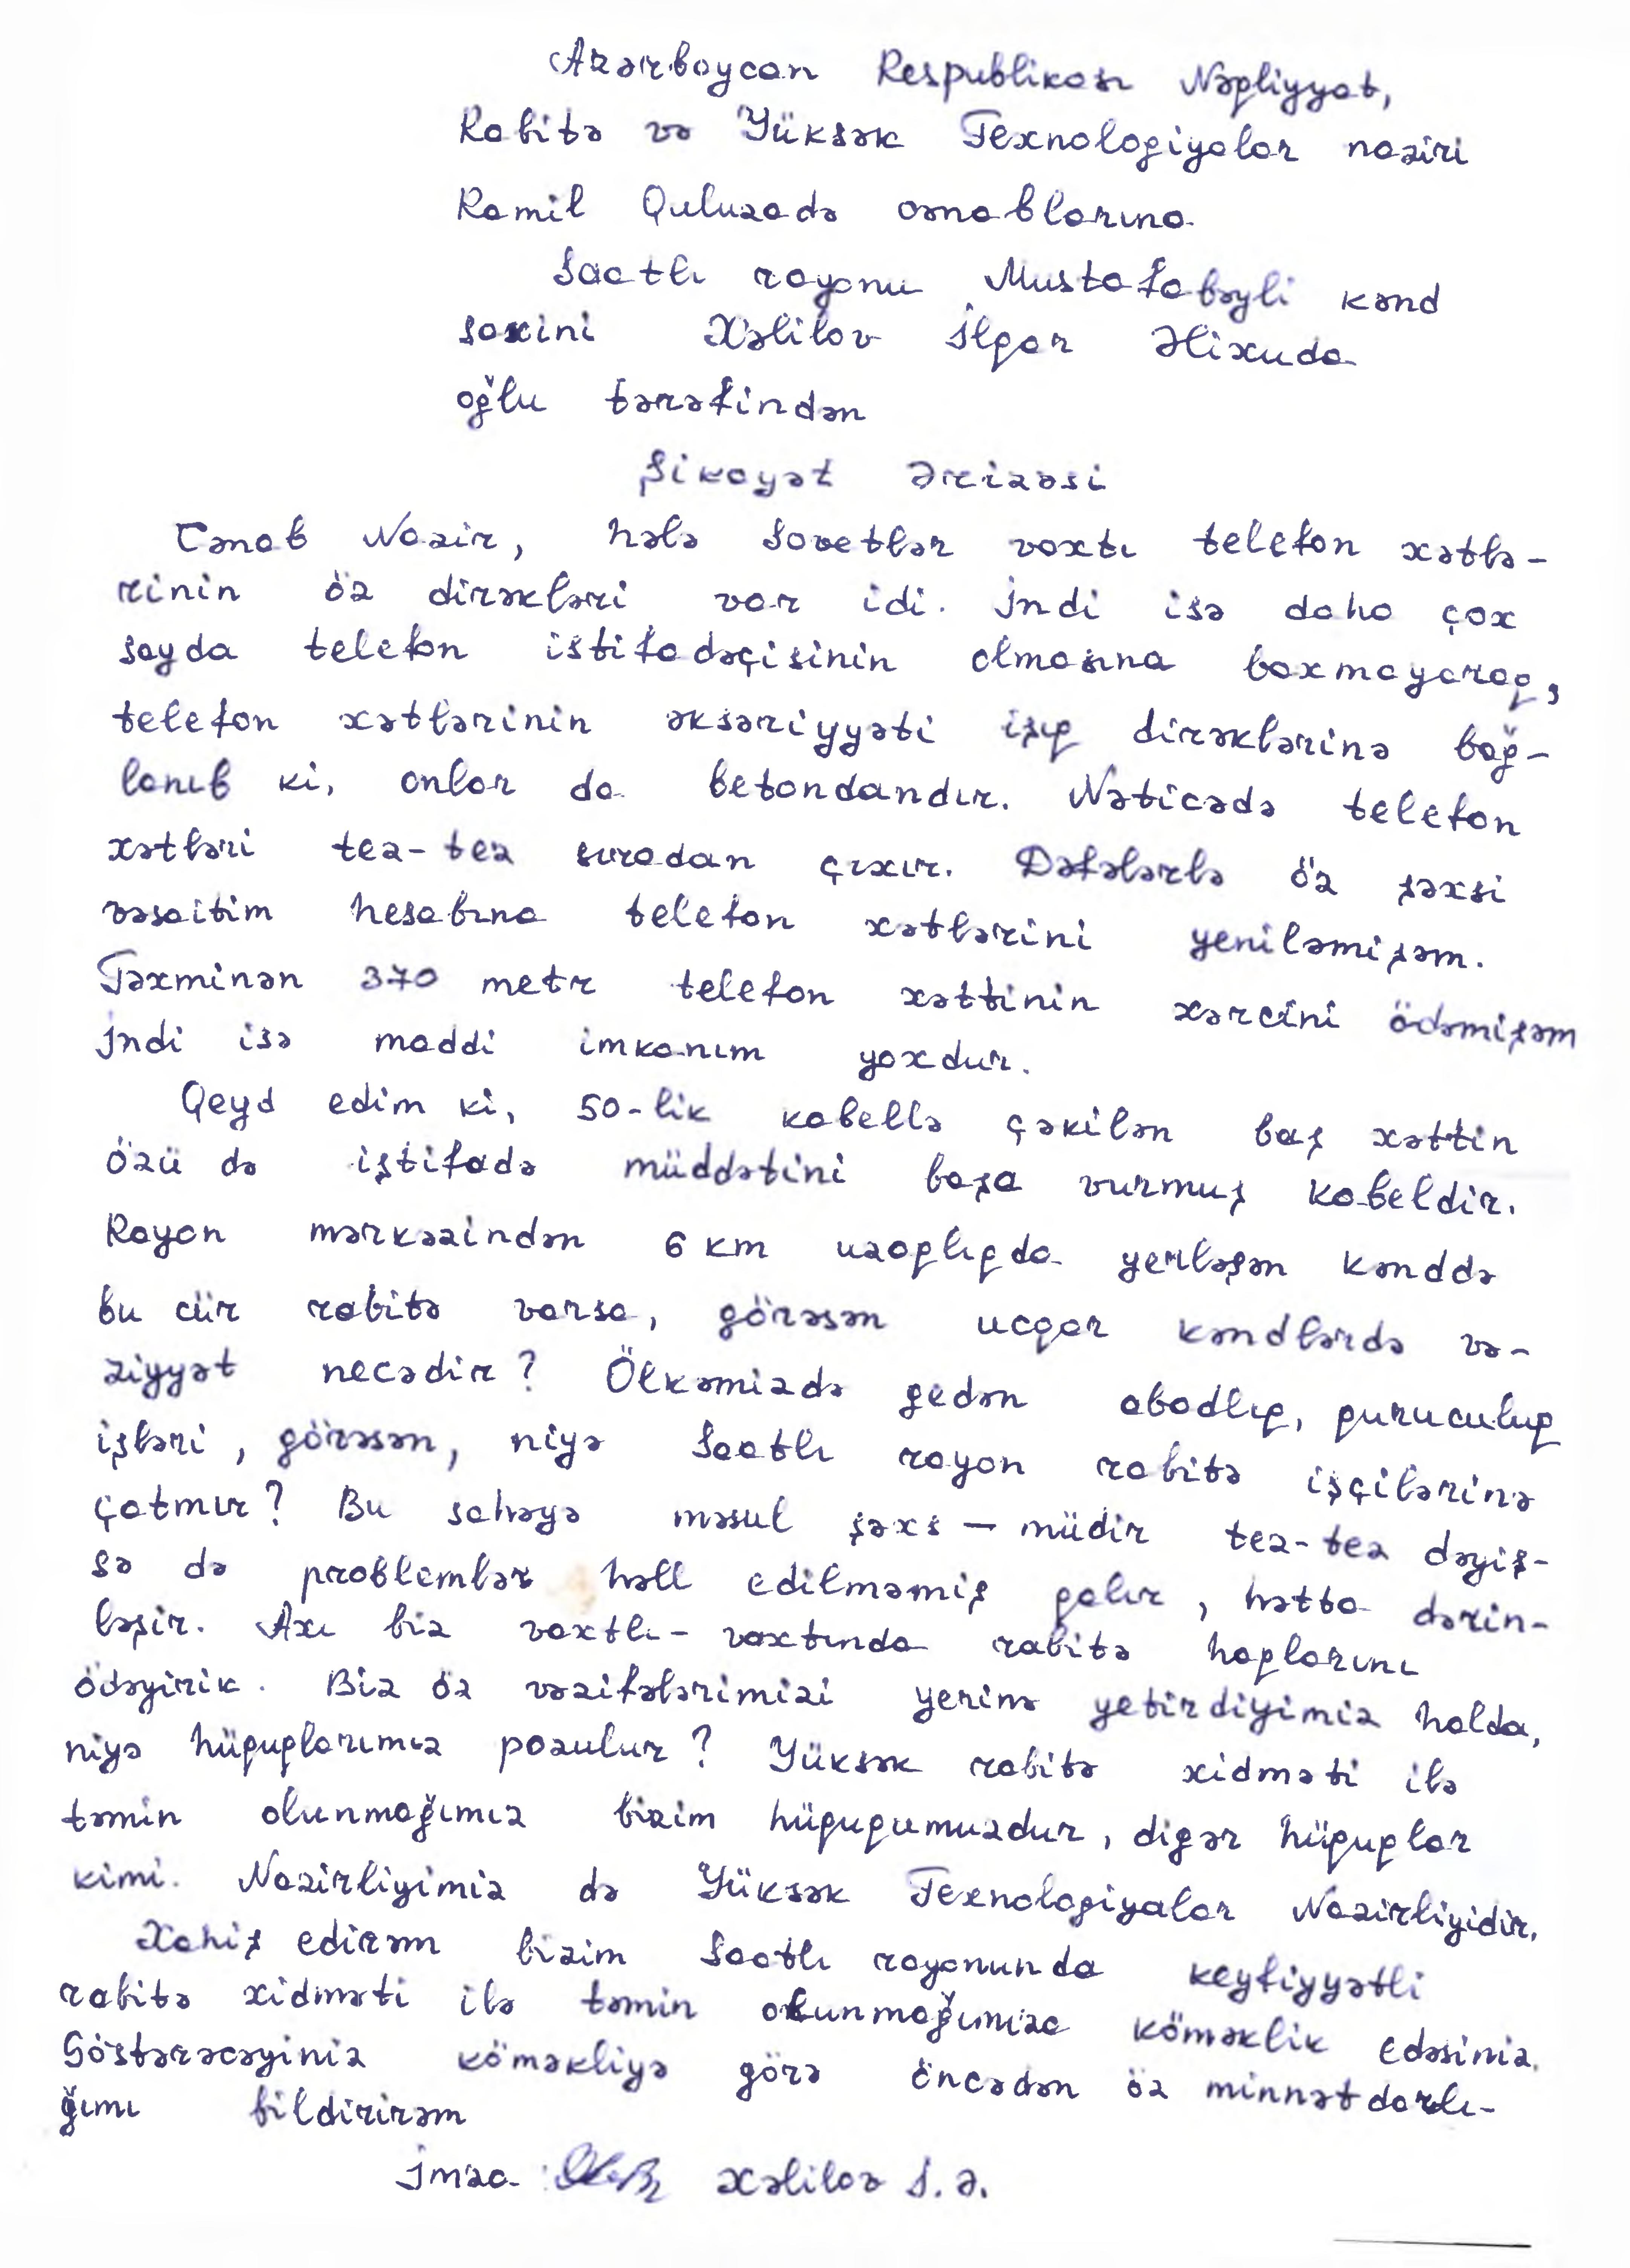 Azərbaycan Respublikası Nəqliyyat,
Rabitə və Yüksək Texnologiyalar naziri
Ramil Quluzadə cənablarına
Saatlı rayonu Mustafabəyli kənd
sakini Xəlilov İlqar Əlixuda
oğlu tərəfindən
Şikayət Ərizəsi
Cənab Nazir, hələ Sovetlər vaxtı telefon xətlə-
rinin öz dirəkləri var idi. İndi isə daha çox
sayda telefon istifadəçisinin olmasına baxmayaraq,
telefon xətlərinin əksəriyyəti işıq dirəklərinə bağ-
lanıb ki, onlar da betondandır. Nəticədə telefon
xətləri tez-tez sıradan çıxır. Dəfələrlə öz şəxsi
vəsaitim hesabına telefon xətlərini yeniləmişəm.
Təxminən 370 metr telefon xəttinin xərcini ödəmişəm
İndi isə maddi imkanım yoxdur.
Qeyd edim ki, 50-lik kabellə çəkilən baş xəttin
özü də iştifadə müddətini başa vurmuş kabeldir.
Rayon mərkəzindən 6 km uzaqlıqda yerləşən kənddə
bu cür rabitə varsa, görəsən ucqar kəndlərdə və-
ziyyət necədir? Ölkəmizdə gedən abadlıq, quruculuq
işləri, görəsən, niyə Saatlı rayon rabitə işçilərinə
çatmır? Bu sahəyə məsul şəxs — müdir tez-tez dəyiş-
sə də problemlər həll edilməmiş qalır, hətta dərin-
ləşir. Axı biz vaxtlı-vaxtında rabitə haqlarını
ödəyirik. Biz öz vəzifələrimizi yerinə yetirdiyimiz halda,
niyə hüquqlarımız pozulur? Yüksək rabitə xidməti ilə
təmin olunmağımız bizim hüququmuzdur, digər hüquqlar
kimi. Nazirliyimiz də Yüksək Texnologiyalar Nazirliyidir.
Xahiş edirəm bizim Saatlı rayonunda keyfiyyətli
rabitə xidməti ilə təmin olunmağımıza köməklik edəsiniz.
Göstərəcəyiniz köməkliyə görə öncədən öz minnətdarlı-
ğımı bildirirəm
İmza: Xəlilov İ.Ə.